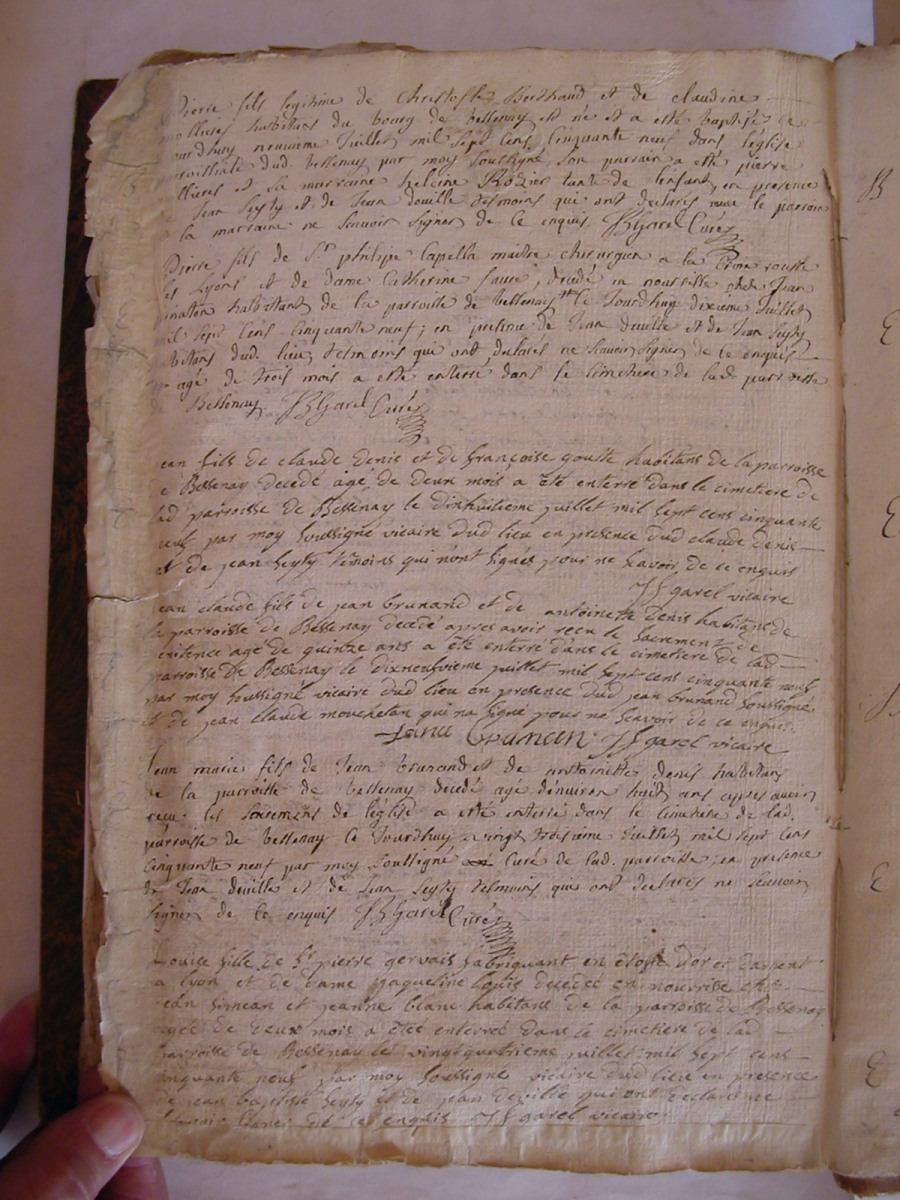 Pierre fils legitime de Christofle Berthaud et de claudine
mollieres habitans du bourg de bessenay est ne et a esté baptisé ce
jourdhuy neuvieme Juillet mil sept cens cinquante neuf dans l'église
parroissialle dud. bessenay par moy soussigné, son parrain a esté pierre
et sa marraine heleine Rozier tante de l'enfant, en presence
Jean Seyty et de Jean douille tesmoins qui ont declarés avec le parrain
la marraine ne scavoir signer de ce enquis JBGarel Curé
Pierre fils de Sr philipe Capella maitre chirurgien a la Croix rousse
les Lyons et de dame Catherine faure, decedé en nourrisse chés Jean
habittant de la parroisse de bessenay ce Jourdhuy dixieme Juillet
mil sept cens cinquante neuf; en presence de Jean deville et de Jean Seyty
habitans dud. lieu tesmoins qui ont declarés ne scavoir signer de ce enquis
agé de trois mois a esté enterré dans le cimetiere de lad. parroisse
de Bessenay JBGarel Curé
Jean fils de claude Denis et de françoise goutte habitans de la parroisse
de Bessenay decedé agé de deux mois a été enterré dans le cimetiere de
lad parroisse de Bessenay le dixhuitieme juillet mil sept cens cinquante
neuf par moy soussigné vicaire dud lieu en presence dud claude denis
et de jean Seyty temoins qui n'ont signés pour ne scavoir de ce enquis
JJ garel vicaire
Jean claude fils de jean brunand et de antoinette Denis habitans de
la parroisse de Bessenay decedé apres avoir reçu le sacrement de
penitence agé de quinze ans a été enterré dans le cimetiere de lad
parroisse de Bessenay le dixneufvieme juillet mil sept cens cinquante neuf
par moy soussigné vicaire dud lieu en presence dud jean brunand soussigné
et de jean claude mouchetan qui na signé pour ne scavoir de ce enquis.
JJ garel vicaire
Jean marie fils de Jean brunand et de antoinette denis habitans
de la parroisse de bessenay decedé agé denviron huit ans apres avoir
recu les sacremens de l'église a esté enterré dans le cimetiere de lad.
parroisse de bessenay ce Jourdhuy vingt troisieme Juillet mil sept cens
cinquante neuf par moy soussigné Curé de lad. parroisse, en presence
de Jean deville et de Jean Seyty tesmoins qui ont declarés ne scavoir
signer de ce enquis JBGarel Curé
Louise fille de Sr pierre gervais fabriquant en étofe d'or et d'argent
a lyon et de dame jaqueline Louis decedée en nourrisse chés
jean simean et jeanne blanc habitans de la parroisse de Bessenay
agée de deux mois a étée enterrée dans le cimetiere de lad
parroisse de Bessenay le vingtquatrieme juillet mil sept cens
cinquante neuf par moy soussigné vicaire dud lieu en presence
de jean baptiste Seyty et de jean deville qui ont declaré ne
scavoir signer de ce enquis JJ garel vicaire